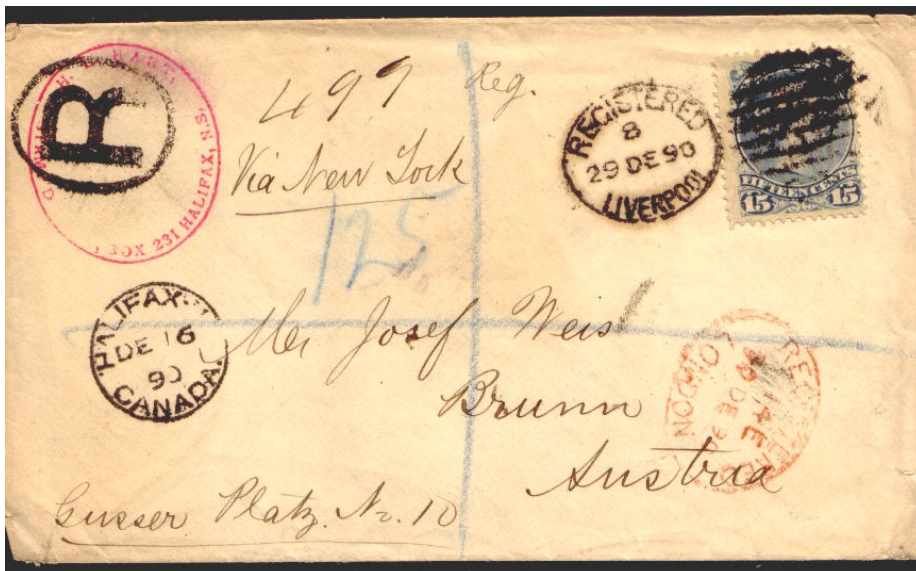 R
H. HART
BOX 231 HALIFAX, N.S.
499 Reg.
Via New York
125
REGISTERED
8
29 DE 90
LIVERPOOL
FIFTEEN CENTS
15 15
HALIFAX
DE 16
90
CANADA
Mr Josef Weis
Brunn
Austria
REGISTERED
14 E
30 DE 90
LONDON
Gusser Platz. No. 10